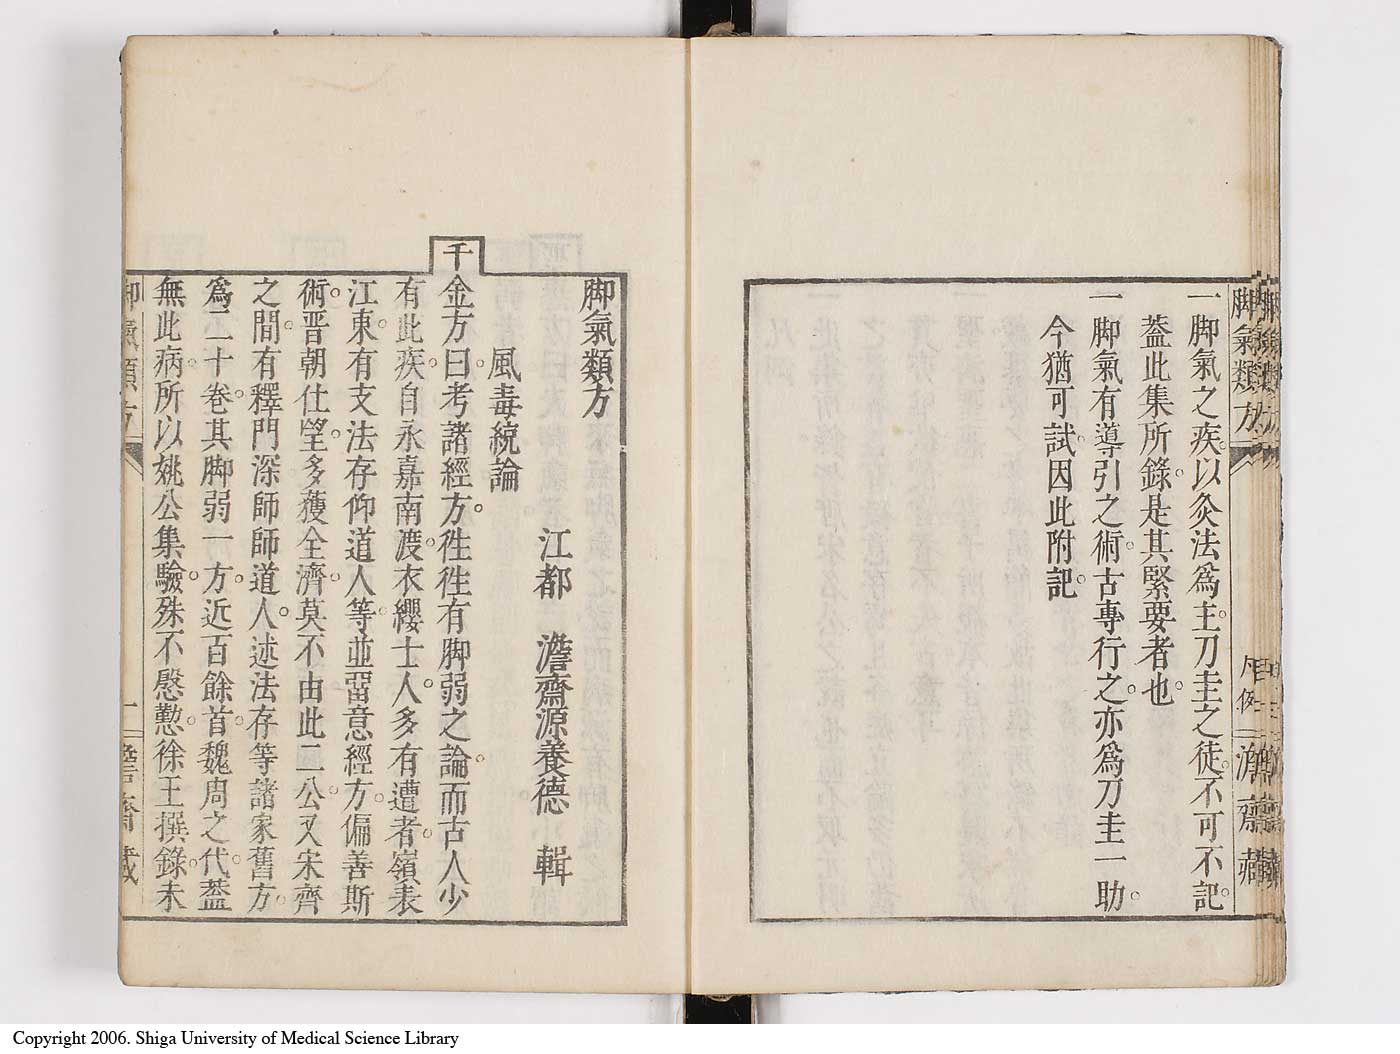 一脚氣之疾以灸法爲主刀圭之徒不可不記
葢此集所錄是其緊要者也
一脚氣有導引之術古專行之亦爲刀圭一助
今猶可試因此附記
脚氣類方
凡例
澹齋藏
脚氣類方
江都　澹齋源養德　輯
風毒統論
千金方曰考諸經方徃徃有脚弱之論而古人少
有此疾自永嘉南渡衣纓士人多有遭者嶺表
江東有支法存仰道人等並畱意經方偏善斯
術晋朝仕望多獲全濟莫不由此二公又宋齊
之間有釋門深師師道人述法存等諸家舊方
爲三十卷其脚弱一方近百餘首魏周之代葢
無此病所以姚公集驗殊不慇懃徐王撰錄未
脚氣類方
一
澹齋藏
Copyright 2006. Shiga University of Medical Science Library